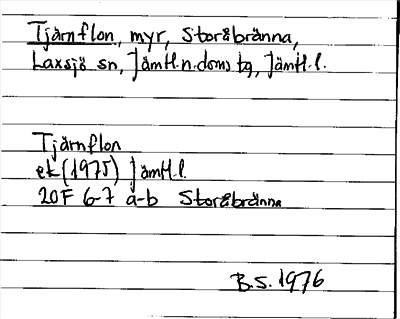 Tjärnflon, myr, Storåbränna,
Laxsjö sn, Jämtl.n.doms tg, Jämtl.l.
Tjärnflon
ek (1975) Jämtl.l.
20F 6-7 a-b Storåbränna
B.S. 1976